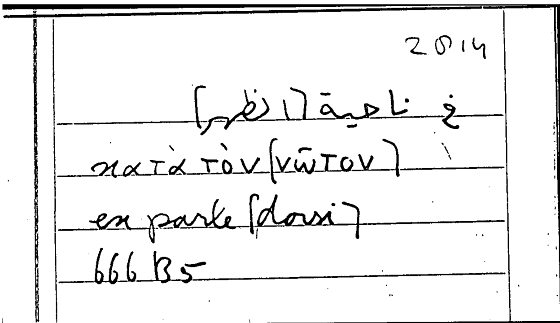 2814
في ناحية [الظهر]
κατὰ τὸν [νῶτον]
ex parte [dorsi]
666 B5